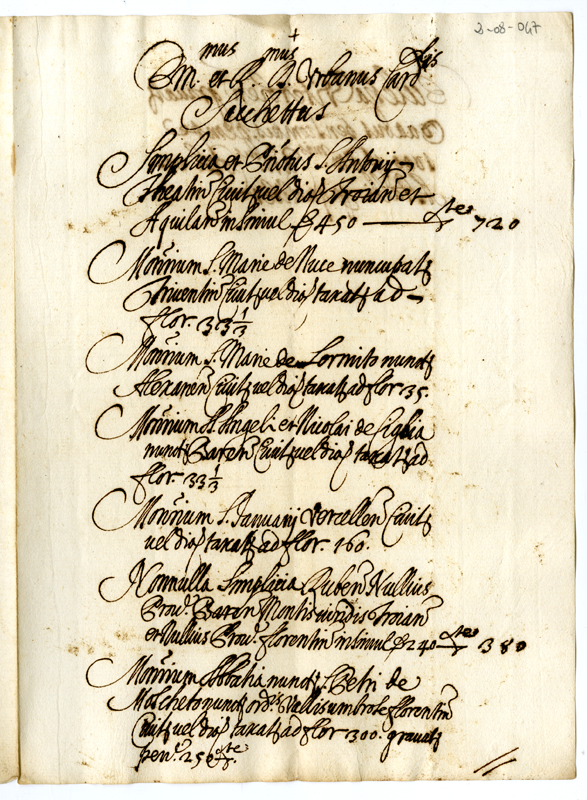 2-08-047
+
Em.mus et R.mus D. Urbanus Card.lis
Sacchettus
Simplicia et S. Antonij
Theatin Civit vel dioc Troian et
Aquilan insimul 450 720
Mon.rium S. Marie de Nuce nuncupat
Triventin Civit vel dioc taxat ad
flor. 33 1/3
Mon.rium S. Marie de Lormito nuncp
Alexanen Civit vel dioc taxat ad flor 35.
Mon.rium S. Angeli et Nicolai de
nuncp Baren Civit vel dioc taxat ad
flor. 33 1/3
Mon.rium S. Januarij Vercellen Civit
vel dioc taxat ad flor. 160.
Nonnulla Simplicia Ruben Nullius
Prov. Baren Montis viridis Troian
et Nullius Prov. florentin insimul 240 380
Mon.rium Abbatia nuncp S. Petri de
Moscheto nuncp ord.is Vallisumbrose florentin
Civit vel dioc taxat ad flor 300. gravat
pen.e 250